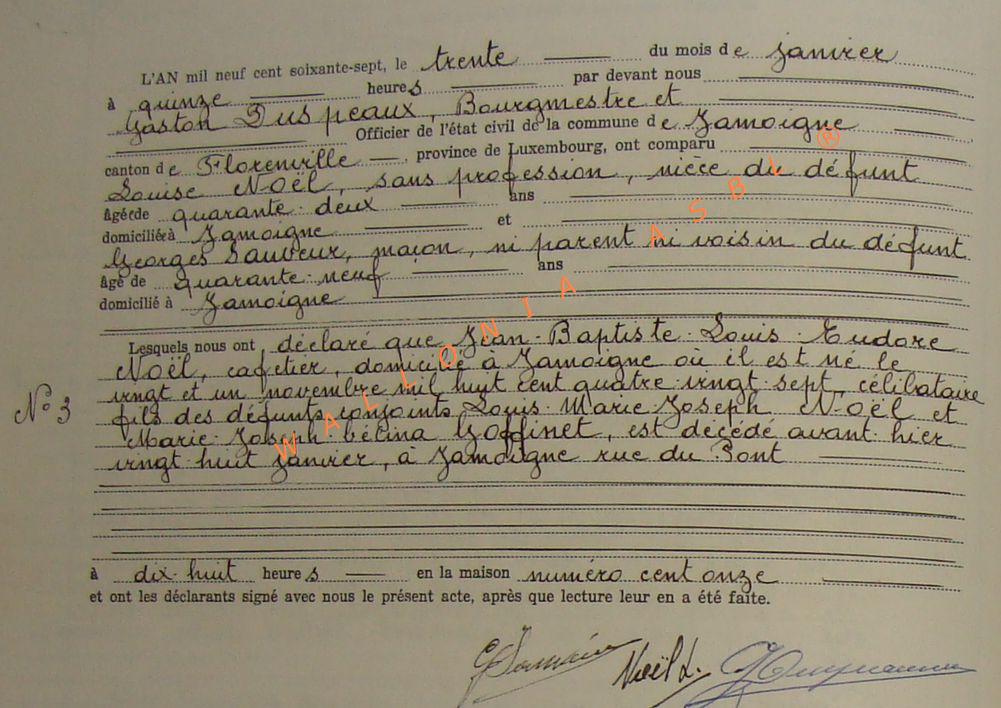 L'AN mil neuf cent soixante-sept, le trente du mois de janvier
à quinze heures par devant nous
Gaston Duspeaux, Bourgmestre et
Officier de l'état civil de la commune de Jamoigne
canton de Florenville, province de Luxembourg, ont comparu
Louise Noël, sans profession, nièce du défunt
âgée de quarante-deux ans
domiciliée à Jamoigne et
Georges Sauveur, maçon, ni parent ni voisin du défunt
âgé de quarante-neuf ans
domicilié à Jamoigne
Lesquels nous ont déclaré que Jean-Baptiste-Louis-Eudore
Noël, cafetier, domicilié à Jamoigne où il est né le
vingt et un novembre mil huit cent quatre-vingt-sept, célibataire
N° 3
fils des défunts conjoints Louis-Marie-Joseph Noël et
Marie-Joseph Goffinet, est décédé avant-hier
vingt-huit janvier, à Jamoigne rue du Pont
à dix-huit heures en la maison numéro cent onze
et ont les déclarants signé avec nous le présent acte, après que lecture leur en a été faite.
Noël L.
WALLONIA ASBL ®